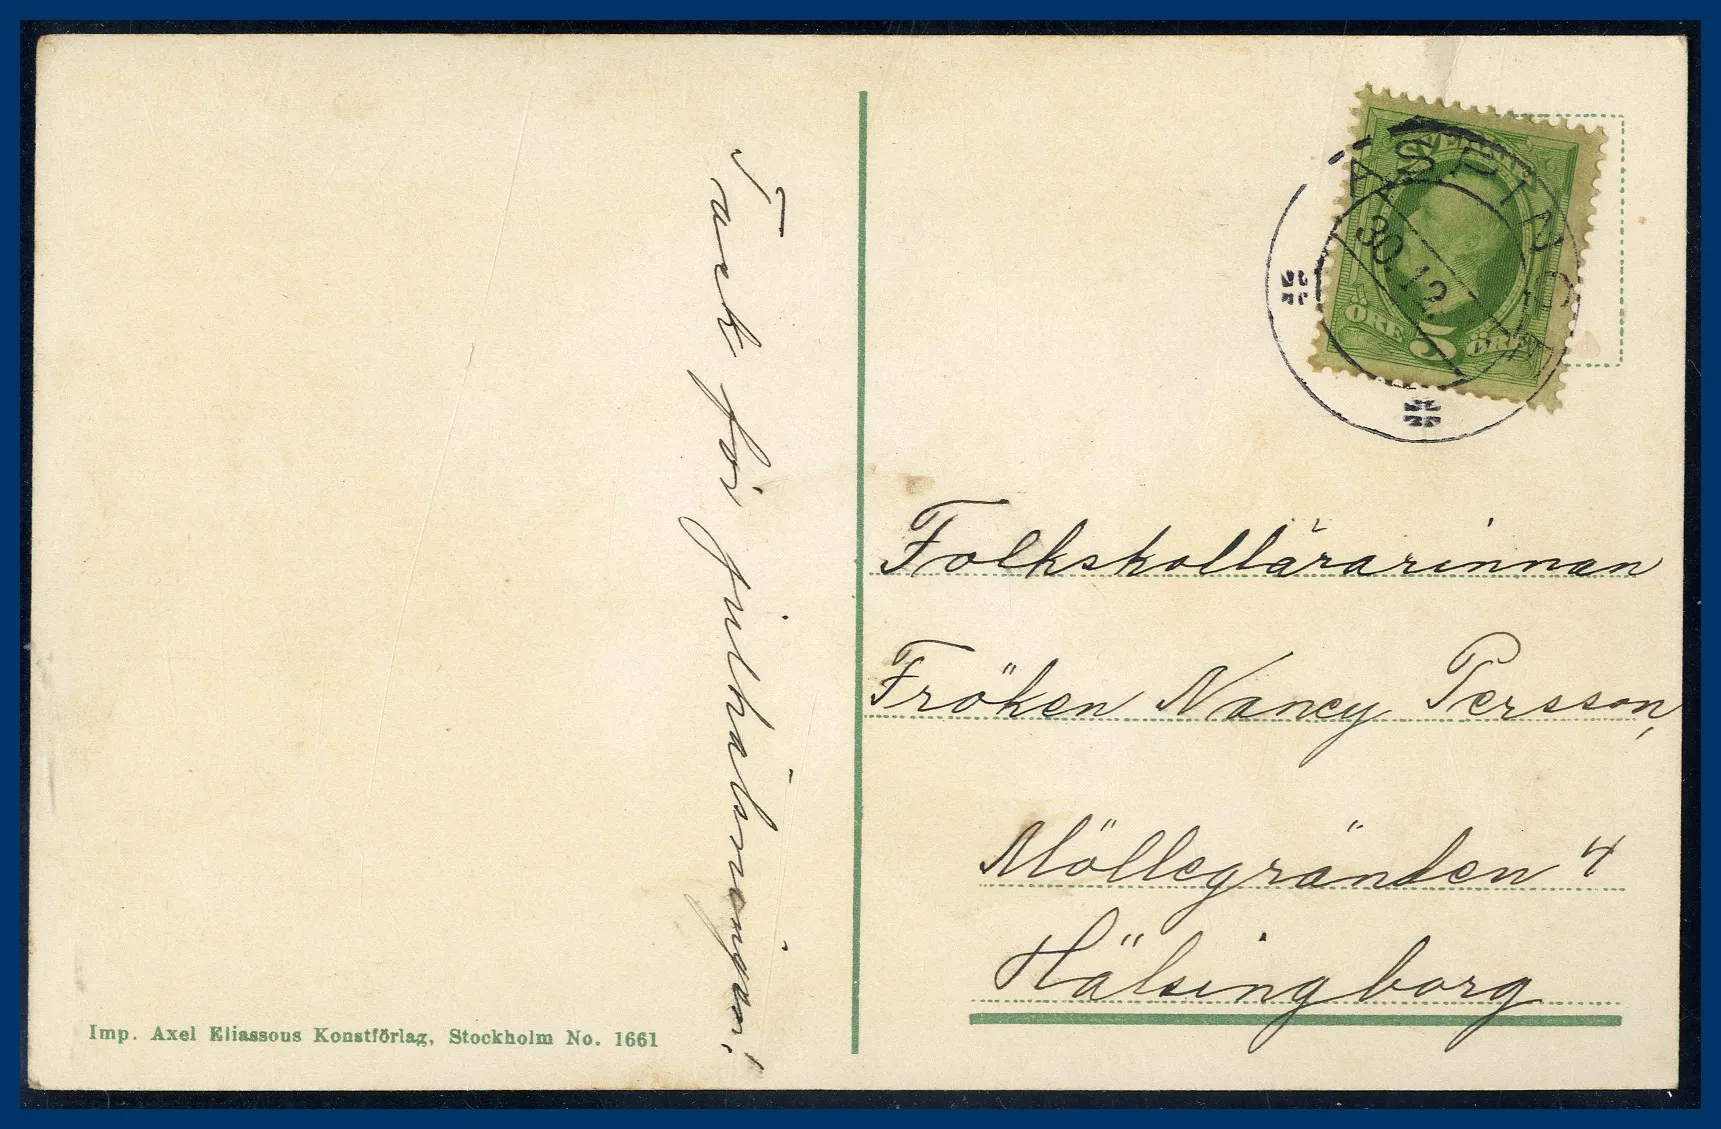 Tack för julhälsningen!
SVERIGE
30.12.
ÖRE 5 ÖRE
Folkskollärarinnan
Fröken Nancy Persson,
Möllegränden 4
Hälsingborg
Imp. Axel Eliassons Konstförlag, Stockholm No. 1661